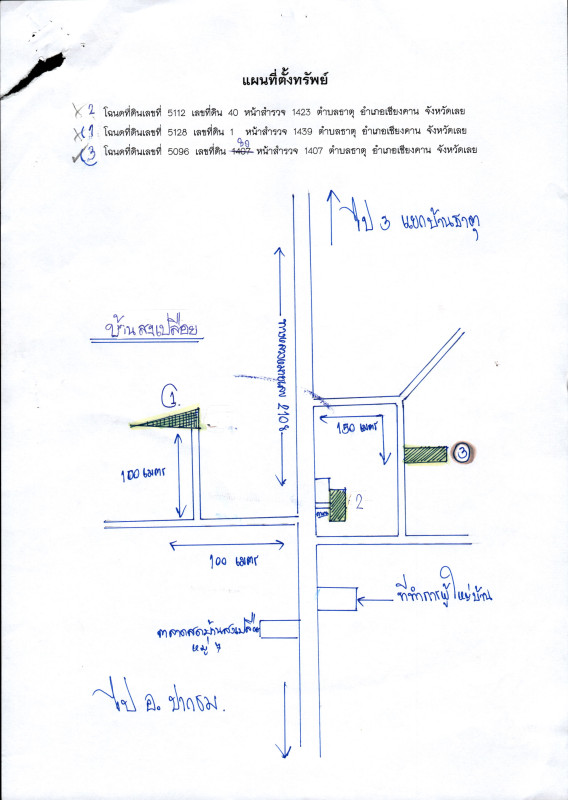 แผนที่ตั้งทรัพย์
2 โฉนดที่ดินเลขที่ 5112 เลขที่ดิน 40 หน้าสำรวจ 1423 ตำบลธาตุ อำเภอเชียงคาน จังหวัดเลย
1 โฉนดที่ดินเลขที่ 5128 เลขที่ดิน 1 หน้าสำรวจ 1439 ตำบลธาตุ อำเภอเชียงคาน จังหวัดเลย
3 โฉนดที่ดินเลขที่ 5096 เลขที่ดิน 1407 หน้าสำรวจ 1407 ตำบลธาตุ อำเภอเชียงคาน จังหวัดเลย
ไป 3 แยกบ้านธาตุ
บ้านสงเปลือย
ทางหลวงหมายเลข 2108
1.
150 เมตร
3
100 เมตร
2
100 เมตร
ที่ทำการผู้ใหญ่บ้าน
ตลาดสดบ้านสงเปลือย
หมู่ 7
ไป อ. ปากชม.